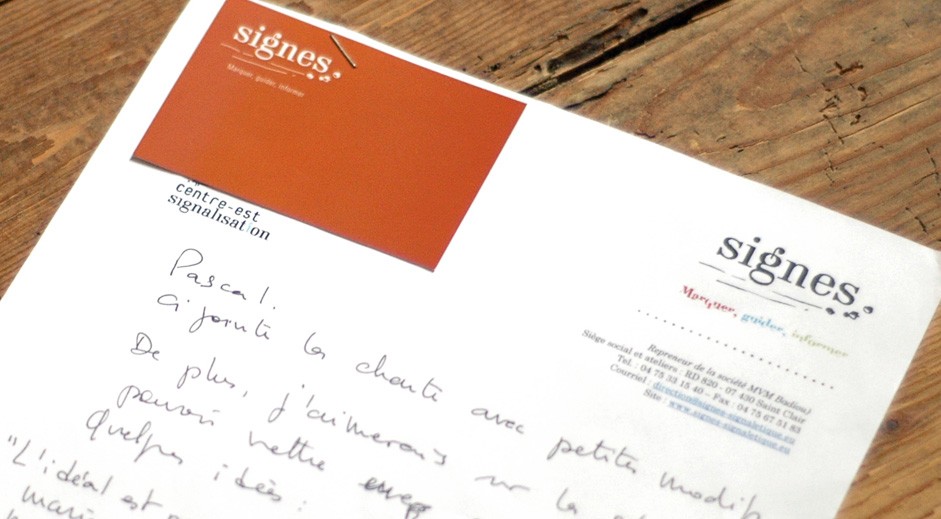 signes
Marquer, guider, informer
centre-est
signalisation
signes
Marquer, guider, informer
Repreneur de la société MVM (Badiou)
Siège social et ateliers : RD 820 - 07 430 Saint Clair
Tel. : 04 75 33 15 40 - Fax : 04 75 67 51 83
Courriel : direction@signes-signaletique.eu
Site : www.signes-signaletique.eu
Pascal.
Ci jointe la charte avec petites modifs
De plus, j'aimerais sur la
pouvoir mettre
Quelques idées :
"L'idéal est